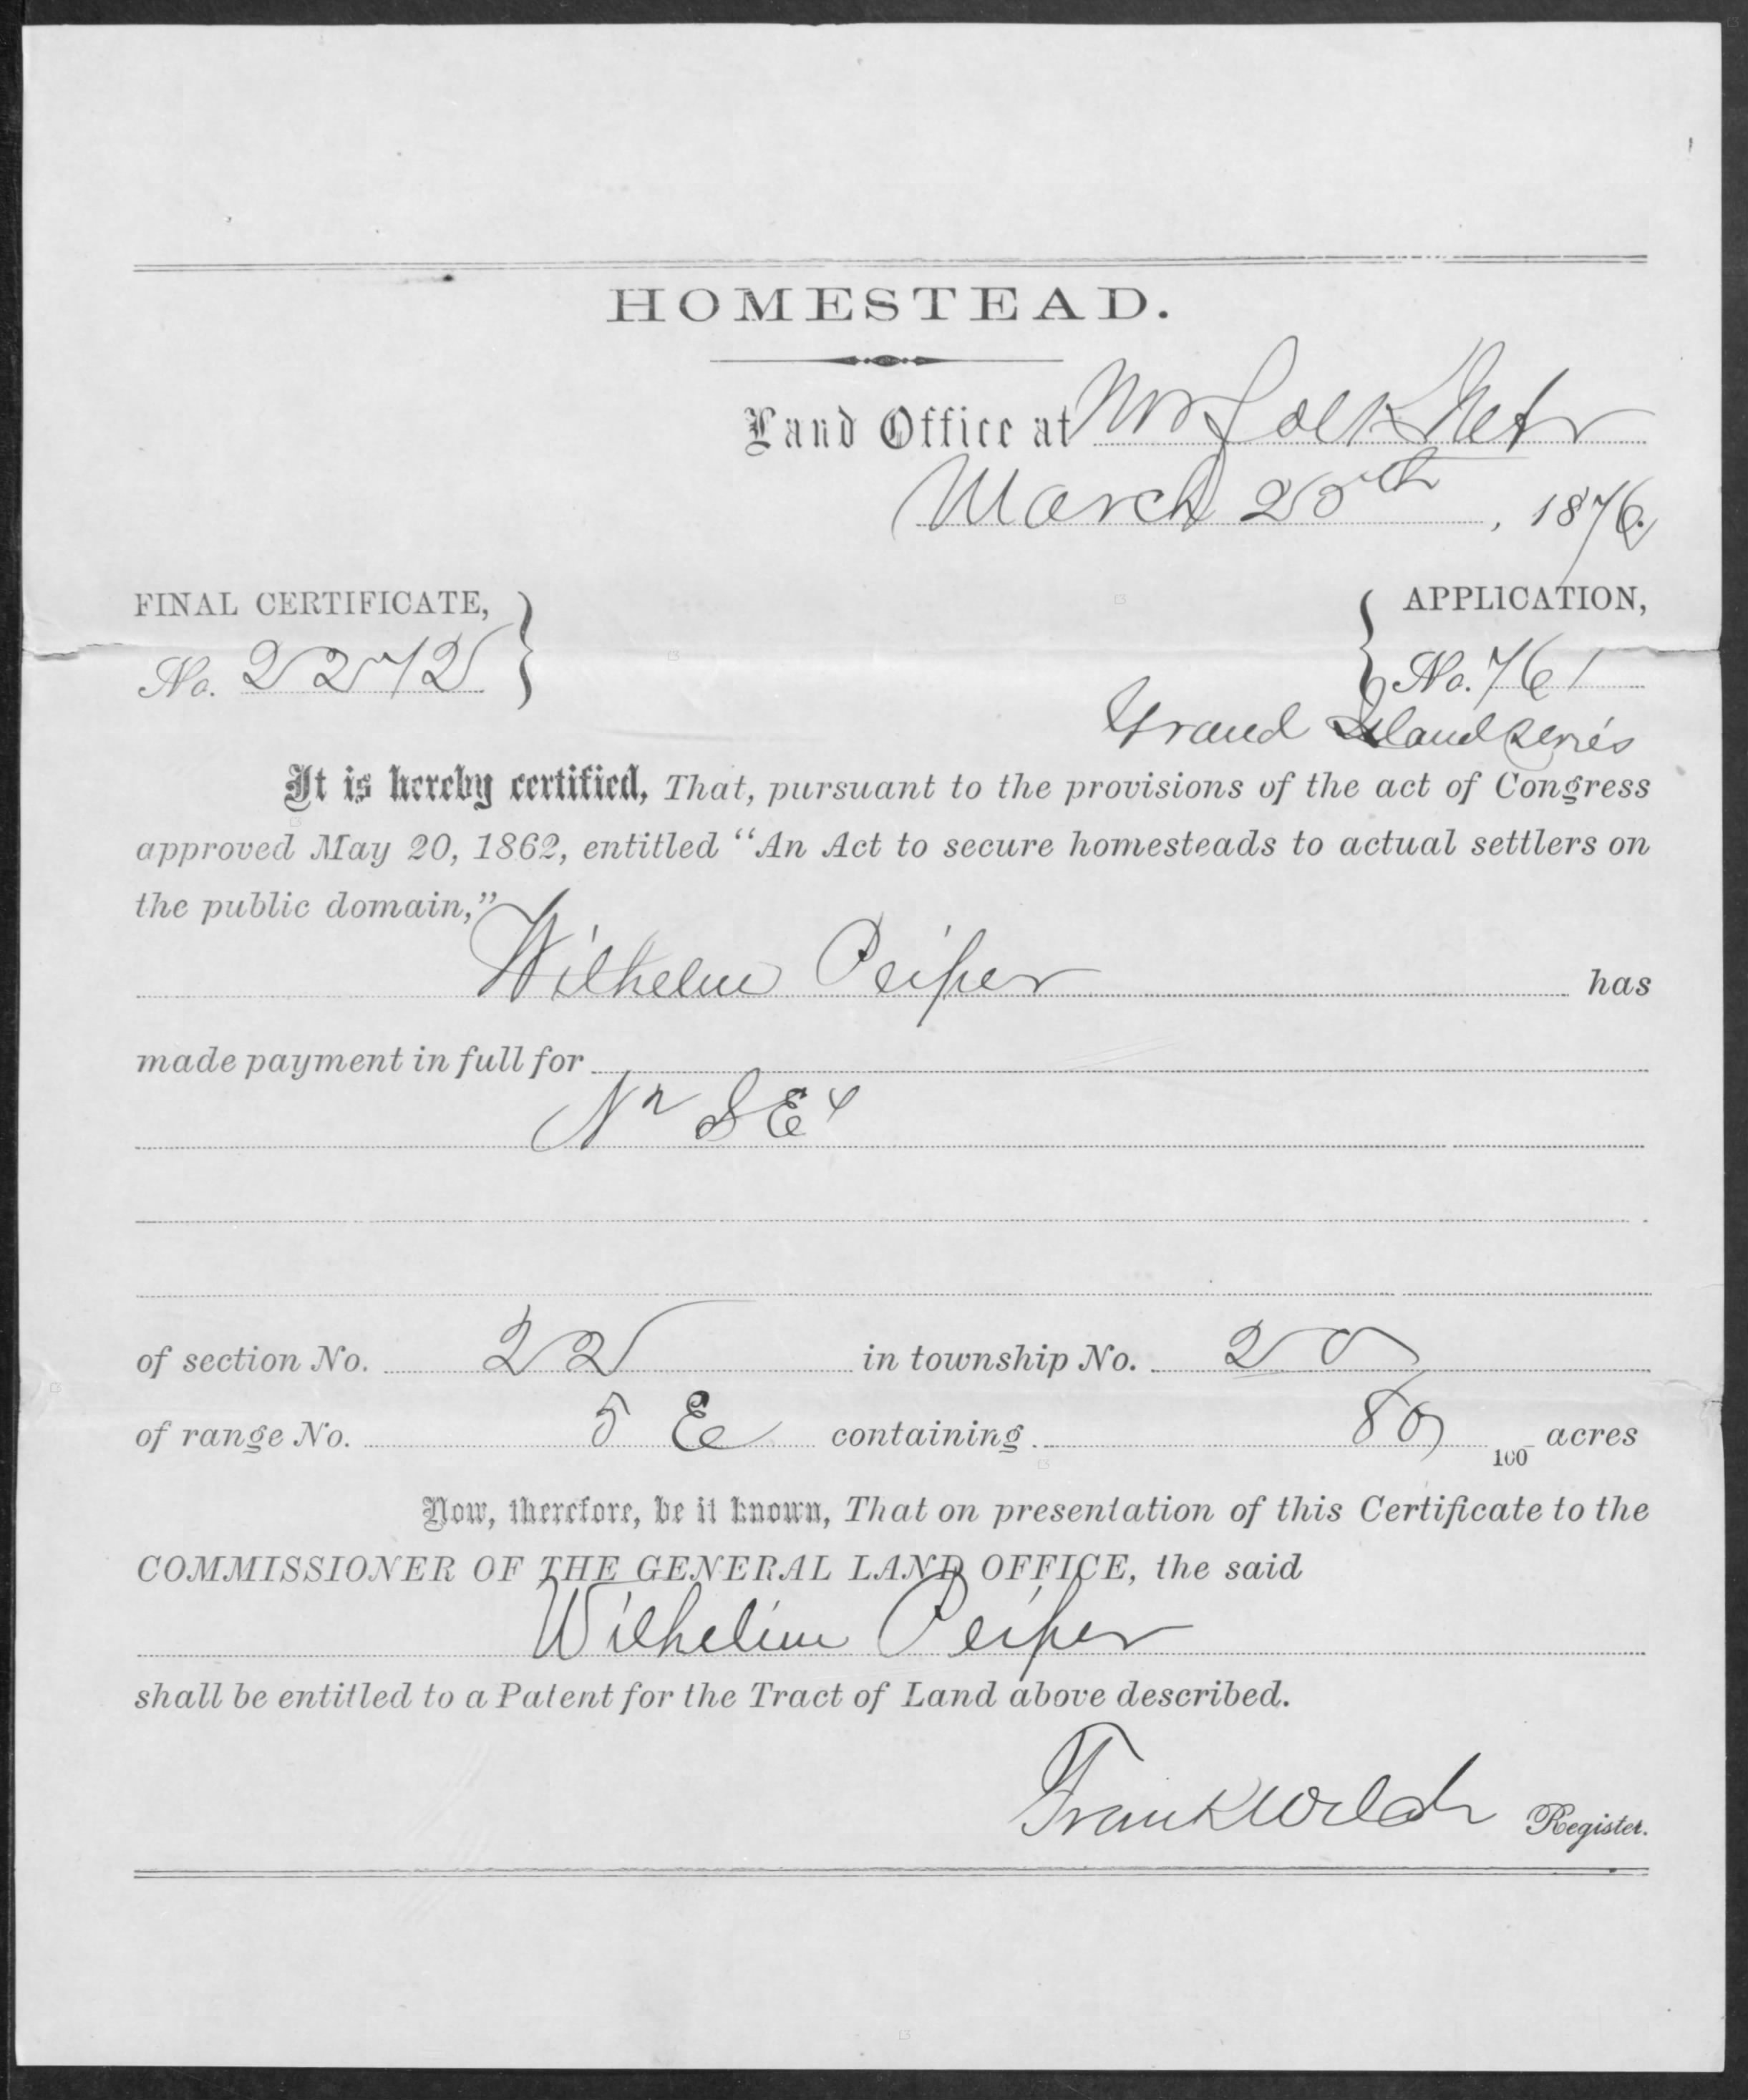 HOMESTEAD.
Land Office at Norfolk Nebr
March 20th, 1876.
FINAL CERTIFICATE,
No. 2272
APPLICATION,
No. 761
Grand Island Series
It is hereby certified, That, pursuant to the provisions of the act of Congress
approved May 20, 1862, entitled “An Act to secure homesteads to actual settlers on
the public domain,”
Wilhelm Peiper has
made payment in full for
N2 SE4
of section No. 22 in township No. 20
of range No. 5 E containing 80 100 acres
Now, therefore, be it known, That on presentation of this Certificate to the
COMMISSIONER OF THE GENERAL LAND OFFICE, the said
Wilhelm Peiper
shall be entitled to a Patent for the Tract of Land above described.
Frank Welch Register.